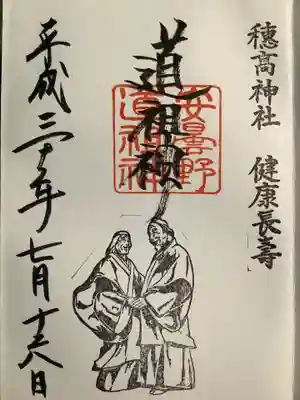 穂高神社 健康長寿
道祖神
安曇野
道祖神
平成三十年七月十六日